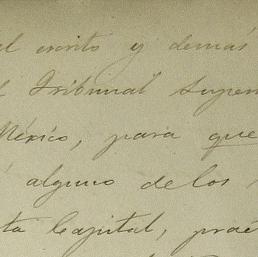 el escrito y demás
l Tribunal Supe
México, para que
alguno de los
ta Capital, prac